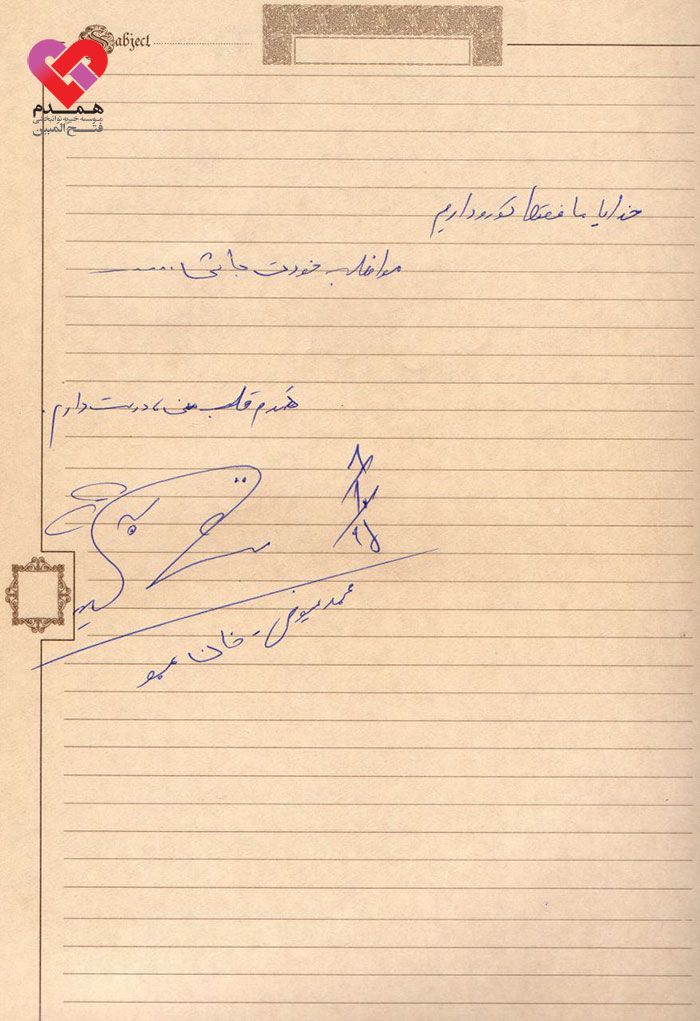 Subject
همدم
موسسه خیریه توانبخشی
فتح المبین
خدایا ما فقط تو رو داریم
مواظب خودت باش .....
همدم قلب منی، دوست دارم.
۸/۱۰/۹۵
محمد عیوضی - خان عمو